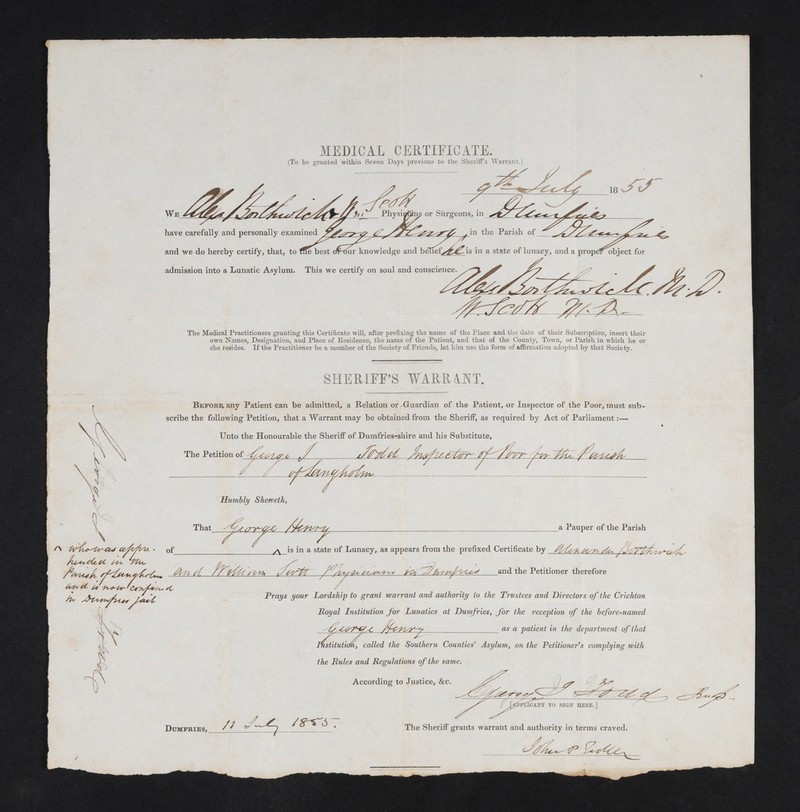 MEDICAL CERTIFICATE.
(To be granted within Seven Days previous to the Sheriff's Warrant.)
9th July 1855
We Alex Borthwick & Wm Scott Physicians or Surgeons, in Dumfries
have carefully and personally examined George Henry in the Parish of Dumfries
and we do hereby certify, that, to the best of our knowledge and belief he is in a state of lunacy, and a proper object for
admission into a Lunatic Asylum. This we certify on soul and conscience.
Alex Borthwick. M.D.
W. Scott M.D.
The Medical Practitioners granting this Certificate will, after prefixing the name of the Place and the date of their Subscription, insert their
own Names, Designation, and Place of Residence, the name of the Patient, and that of the County, Town, or Parish in which he or
she resides. If the Practitioner be a member of the Society of Friends, let him use the form of affirmation adopted by that Society.
SHERIFF'S WARRANT.
Before any Patient can be admitted, a Relation or Guardian of the Patient, or Inspector of the Poor, must sub-
scribe the following Petition, that a Warrant may be obtained from the Sheriff, as required by Act of Parliament:—
Unto the Honourable the Sheriff of Dumfries-shire and his Substitute,
The Petition of George J Todd Inspector of Poor for the Parish
of Langholm
Humbly Sheweth,
That George Henry a Pauper of the Parish
of ^ is in a state of Lunacy, as appears from the prefixed Certificate by Alexander Borthwick
and William Scott Physicians in Dumfries and the Petitioner therefore
^ who was appre-
hended in the
Parish of Langholm
and is now confined
in Dumfries jail
George J Todd
Prays your Lordship to grant warrant and authority to the Trustees and Directors of the Crichton
Royal Institution for Lunatics at Dumfries, for the reception of the before-named
George Henry as a patient in the department of that
Institution, called the Southern Counties' Asylum, on the Petitioner's complying with
the Rules and Regulations of the same.
According to Justice, &c.
George J Todd Insp.
[APPLICANT TO SIGN HERE.]
Dumfries, 11 July 1855. The Sheriff grants warrant and authority in terms craved.
John